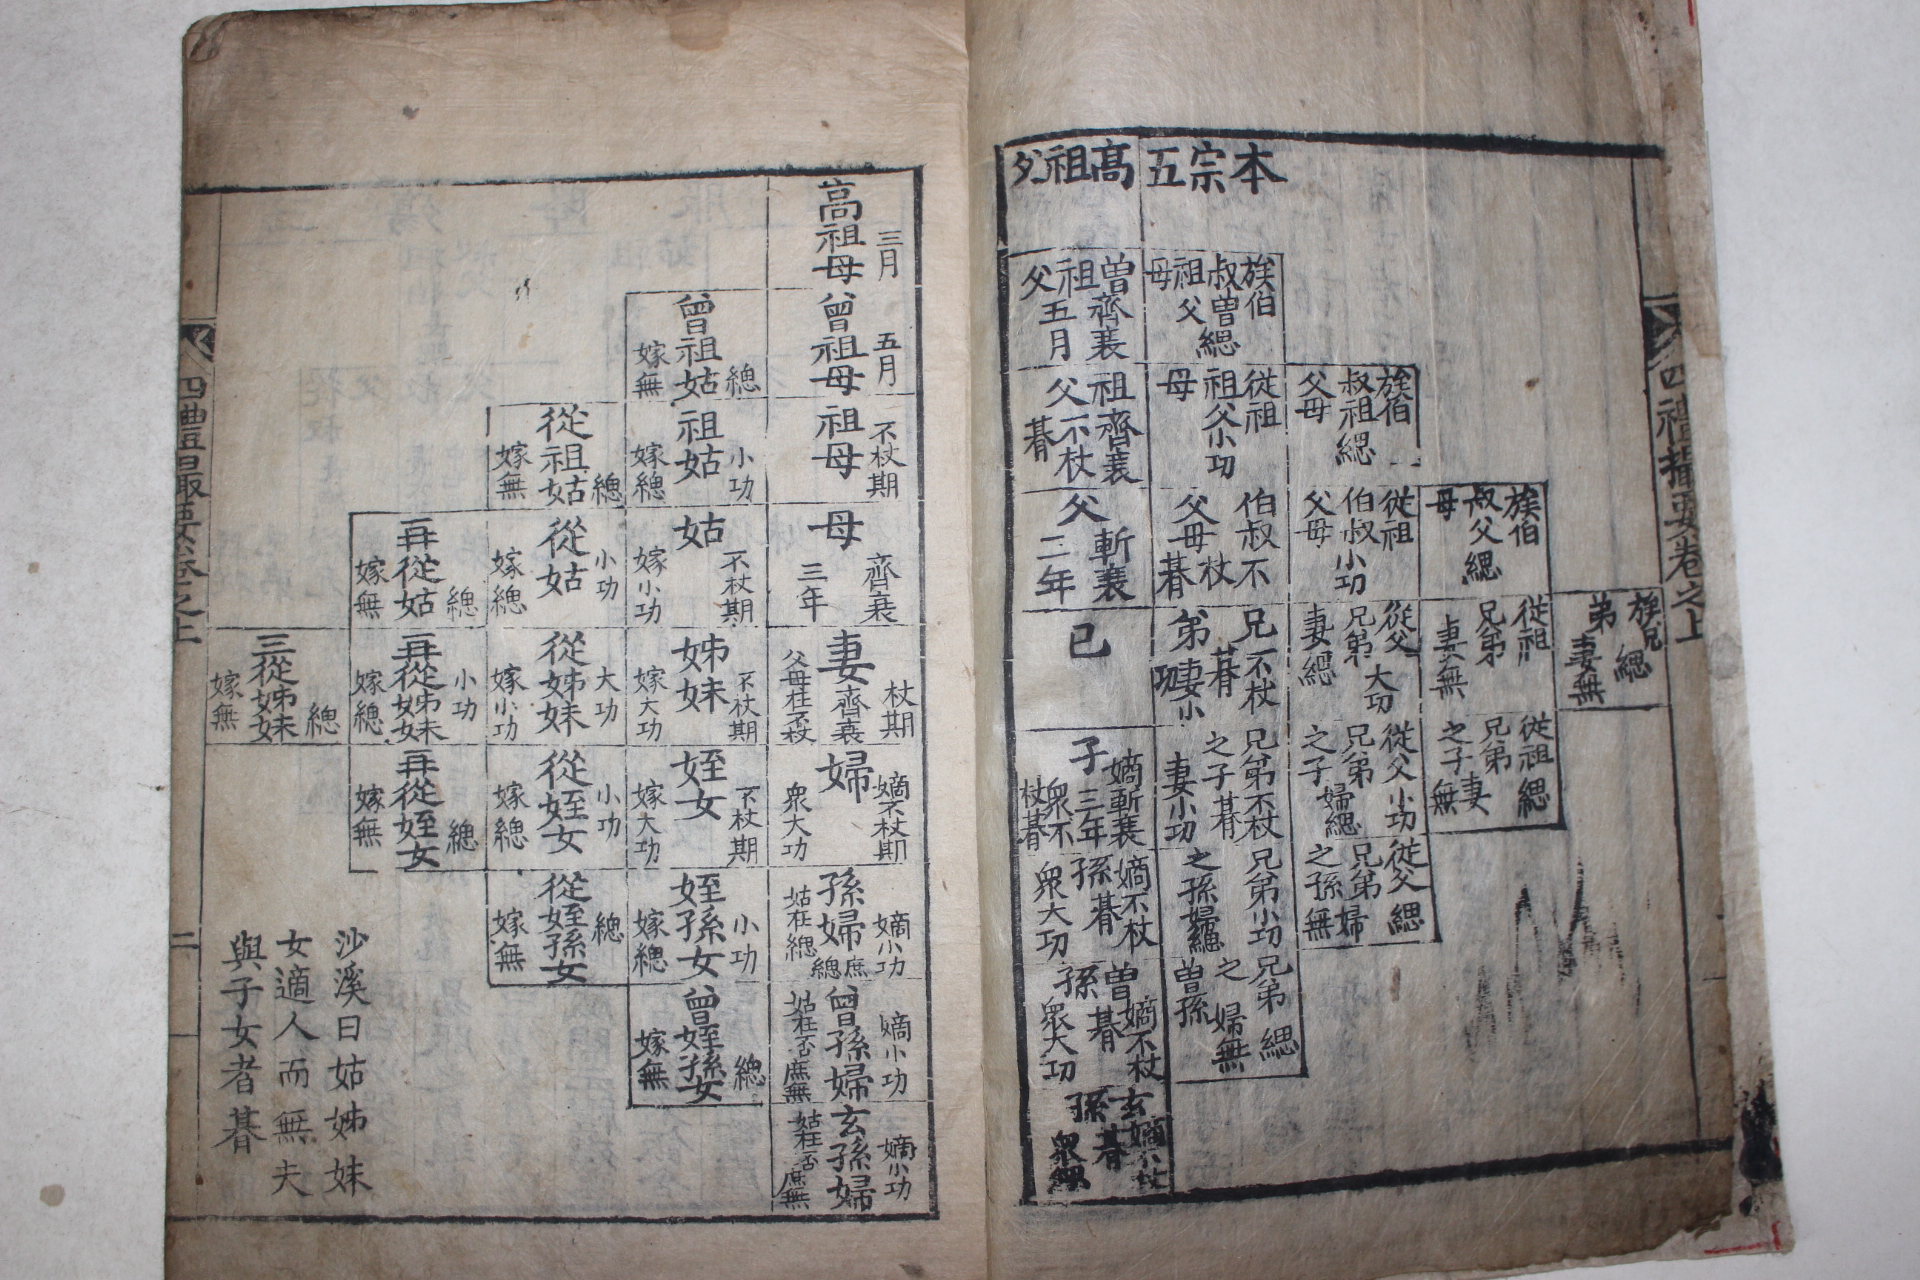 本宗五
高祖
族伯
叔曽
祖父
母
緦
曽
祖
父
齊衰
五月
族伯
叔祖
父母
緦
從祖
祖父
母
小功
祖
父
齊衰
不杖
朞
族伯
叔父
母
緦
從祖
伯叔
父母
小功
伯叔
父母
不杖
朞
父
斬衰
三年
族兄
弟
緦
妻無
從祖
兄弟
妻無
從父
兄弟
大功
妻緦
兄弟
不杖
朞
妻小功
已
從祖
兄弟
之子
緦
妻無
從父
兄弟
之子
小功
婦緦
兄弟
之子
不杖
朞
妻小功
子
嫡斬衰
三年
衆不
杖朞
從父
兄弟
之孫
緦
婦無
兄弟
之孫
小功
婦緦
孫
嫡不杖
朞
衆大功
兄弟
之
曽孫
緦
婦無
曽
孫
嫡不杖
朞
衆大功
玄
孫
嫡不杖
朞
四禮撮要卷之上
高祖母
三月
曾祖母
五月
曾祖姑
緦
嫁無
祖母
不杖期
祖姑
小功
嫁緦
從祖姑
緦
嫁無
母
齊衰
三年
姑
不杖期
嫁小功
從姑
小功
嫁緦
再從姑
緦
嫁無
妻
杖期
齊衰
父母在不杖
姊妹
不杖期
嫁大功
從姊妹
大功
嫁小功
再從姊妹
小功
嫁緦
三從姊妹
緦
嫁無
婦
嫡不杖期
衆大功
姪女
不杖期
嫁大功
從姪女
小功
嫁緦
再從姪女
緦
嫁無
孫婦
嫡小功
庶緦
姑在緦
姪孫女
小功
嫁緦
從姪孫女
緦
嫁無
曾孫婦
嫡小功
姑在否庶無
曾姪孫女
緦
嫁無
玄孫婦
嫡小功
姑在否庶無
沙溪曰姑姊妹
女適人而無夫
與子女者朞
四禮撮要卷之上
二